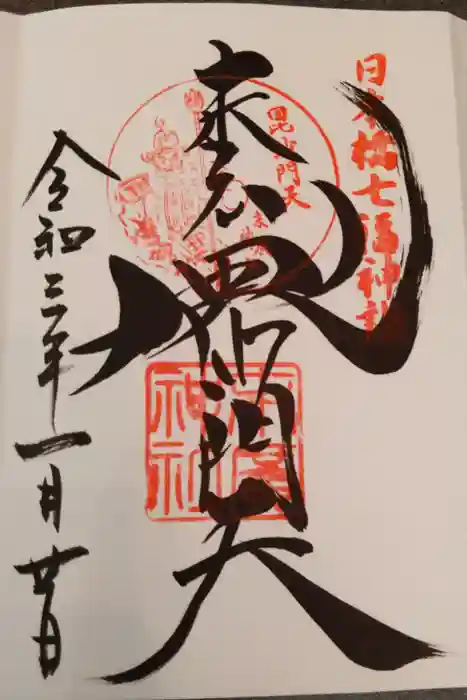 日本橋七福神
毘沙門天
奉拝
毘沙門天
神社
令和三年一月廿日